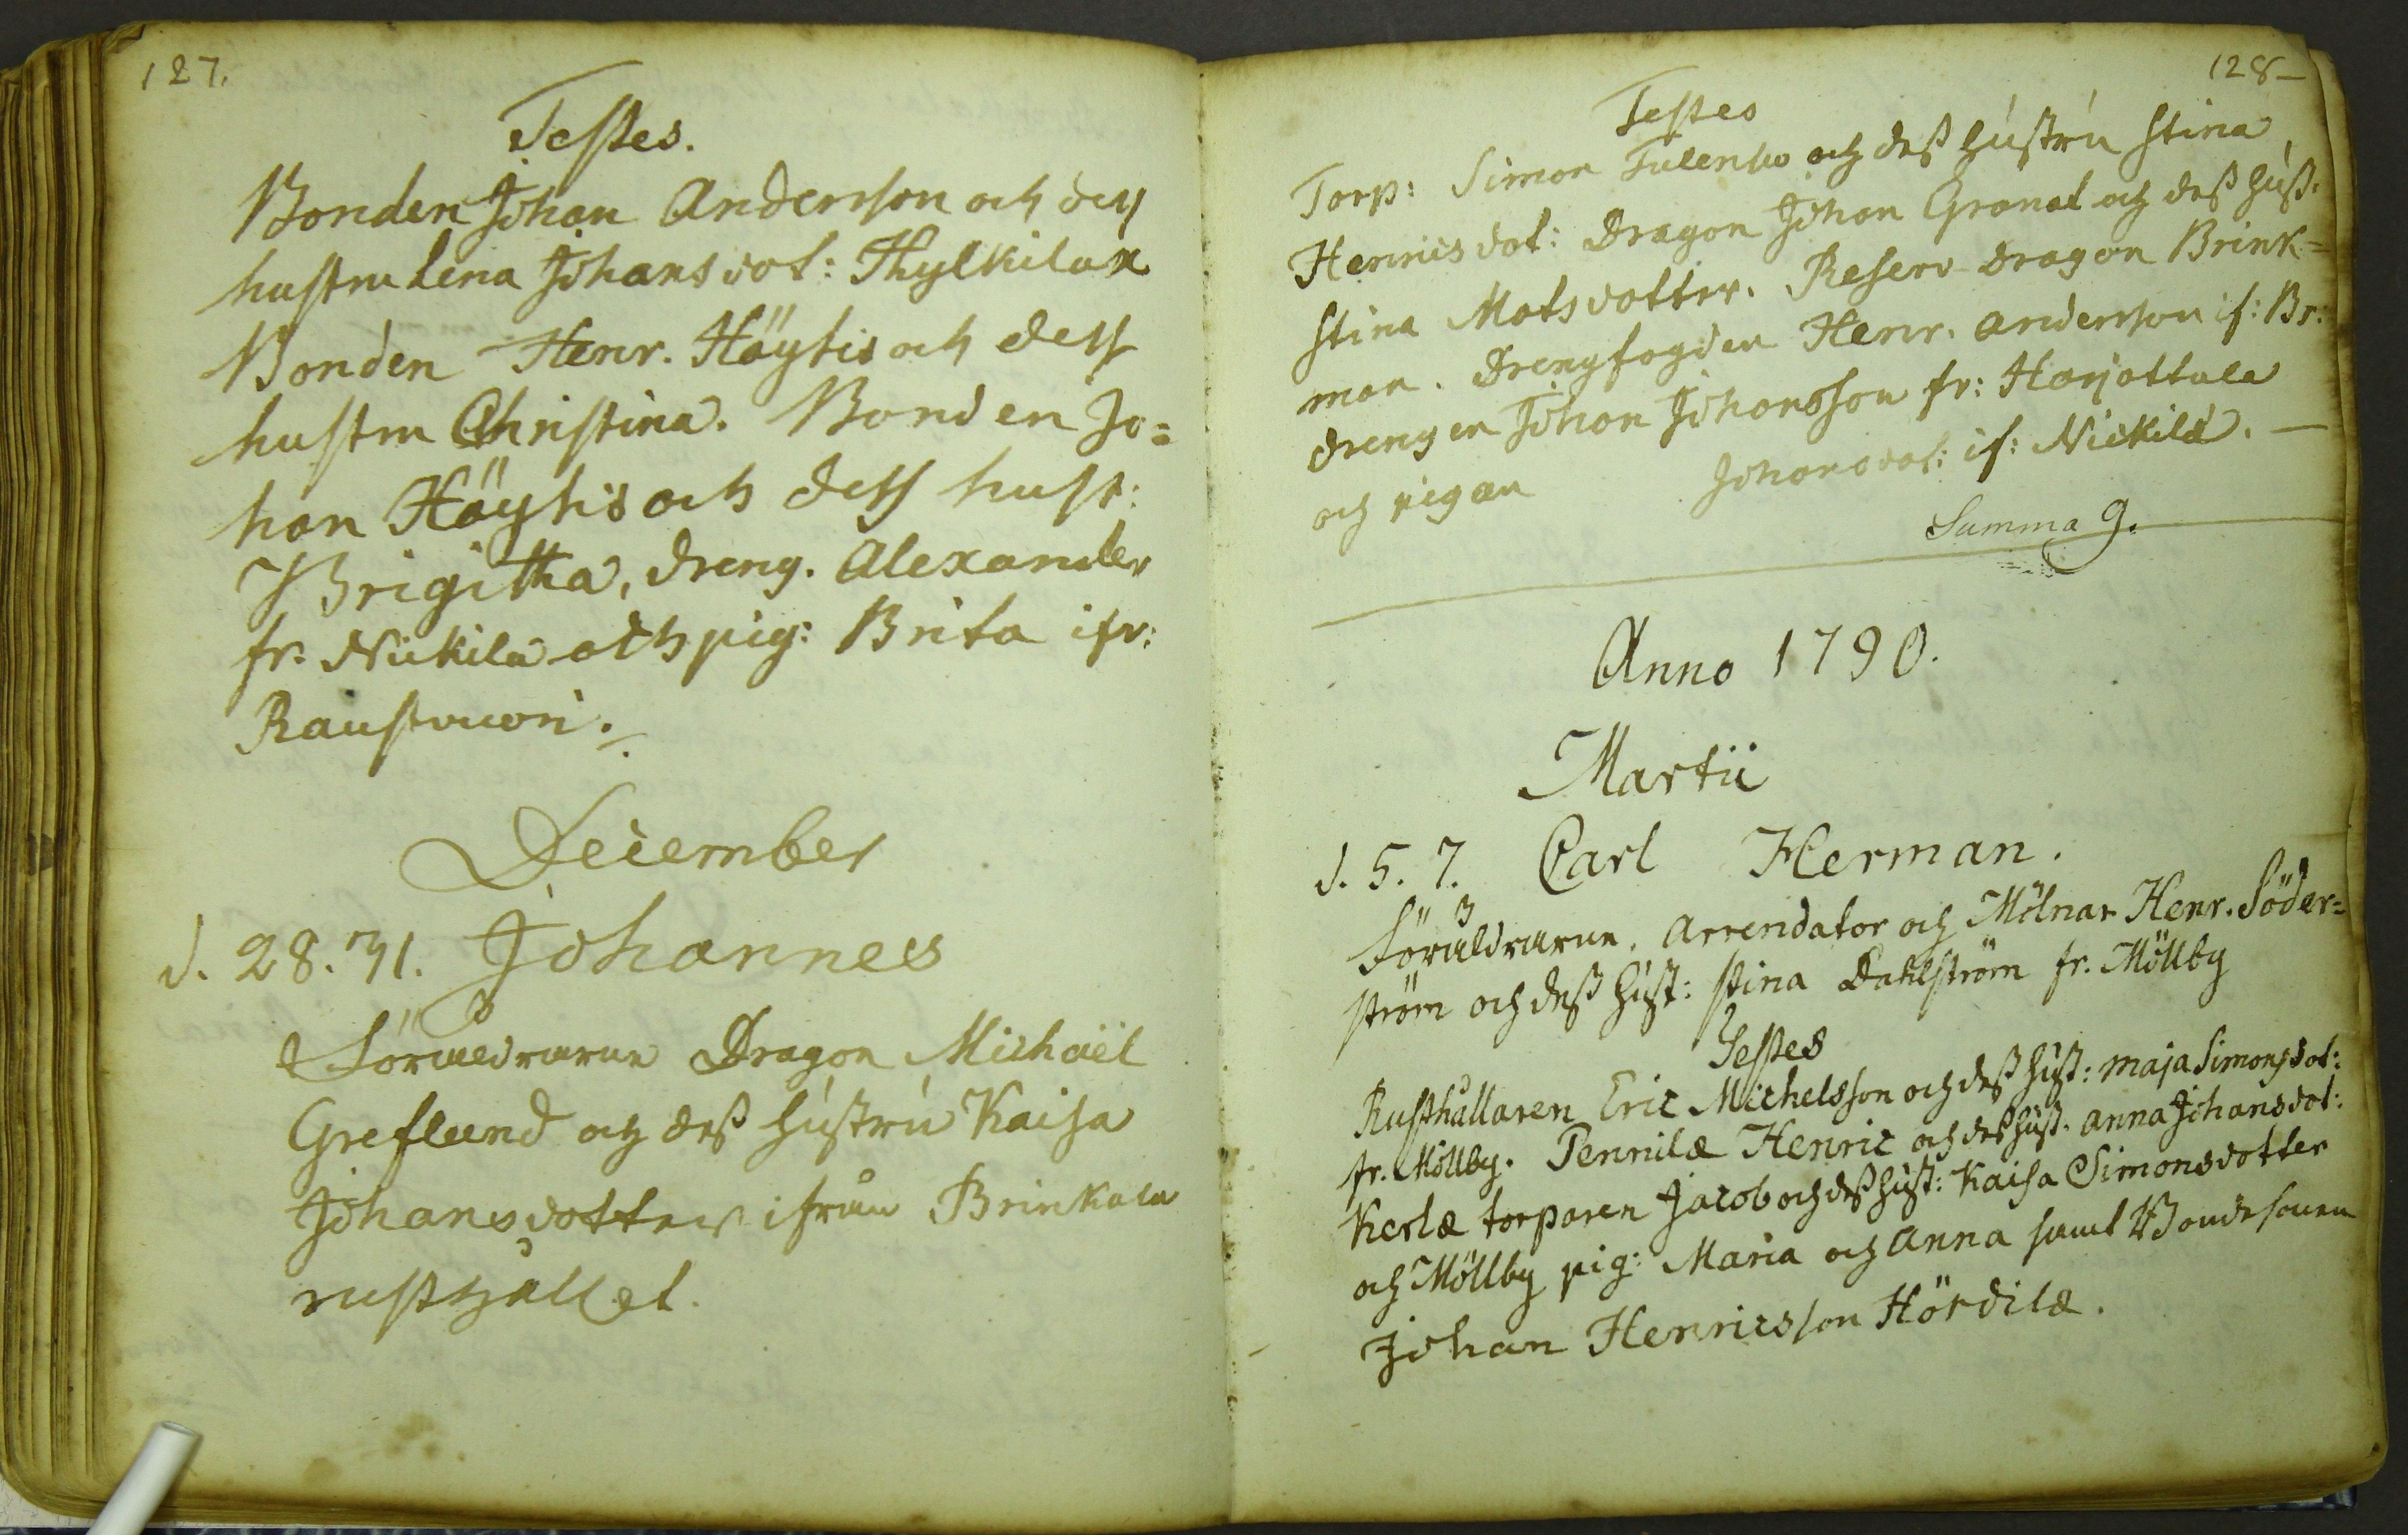 127.
Testes.
Bonden Johan Andersson och dess
hustru Lena Johansdot: Thylkilax
Bonden Henr. Höyhis och dess
hustru Christina. Bonden Jo=
han Höyhis och dess hust:
Brigitha, dreng. Alexander
fr. Nickila och pig: Brita ifr:
Raustvuori.
December
d. 28. 31. Johannes
Föräldrarne Dragon Michaël
Greflund och dess hustru Kaisa
Johansdotter ifrån Brinkala
rusthållet.
128
Testes
Torp: Simon och dess hustru Stina
Henricsdot: Dragon Johan Granat och dess hust:
Stina Matsdotter. Reserv dragon Brink=
man. Drengfogden Henr. Andersson if: Br:
drengen Johan Johansson fr: Harjattula
och pigan Johansdot: if: Nickilä.
Summa 9.
Anno 1790.
Martii
d. 5. 7. Carl Herman.
Föräldrarne. Arrendator och Mölnar Henr. Söder=
ström och dess hust: Stina Dahlström fr. Möllby
Testes
Rusthållaren Eric Michelsson och dess hust: Maja Simonsdot:
fr. Möllby. Pennilæ Henric och dess hust. Anna Johansdot:
Kerlæ torparen Jacob och dess hust: Kaisa Simonsdotter
och Möllby pig: Maria och Anna samt Bondesonen
Johan Henricsson Hördilæ.